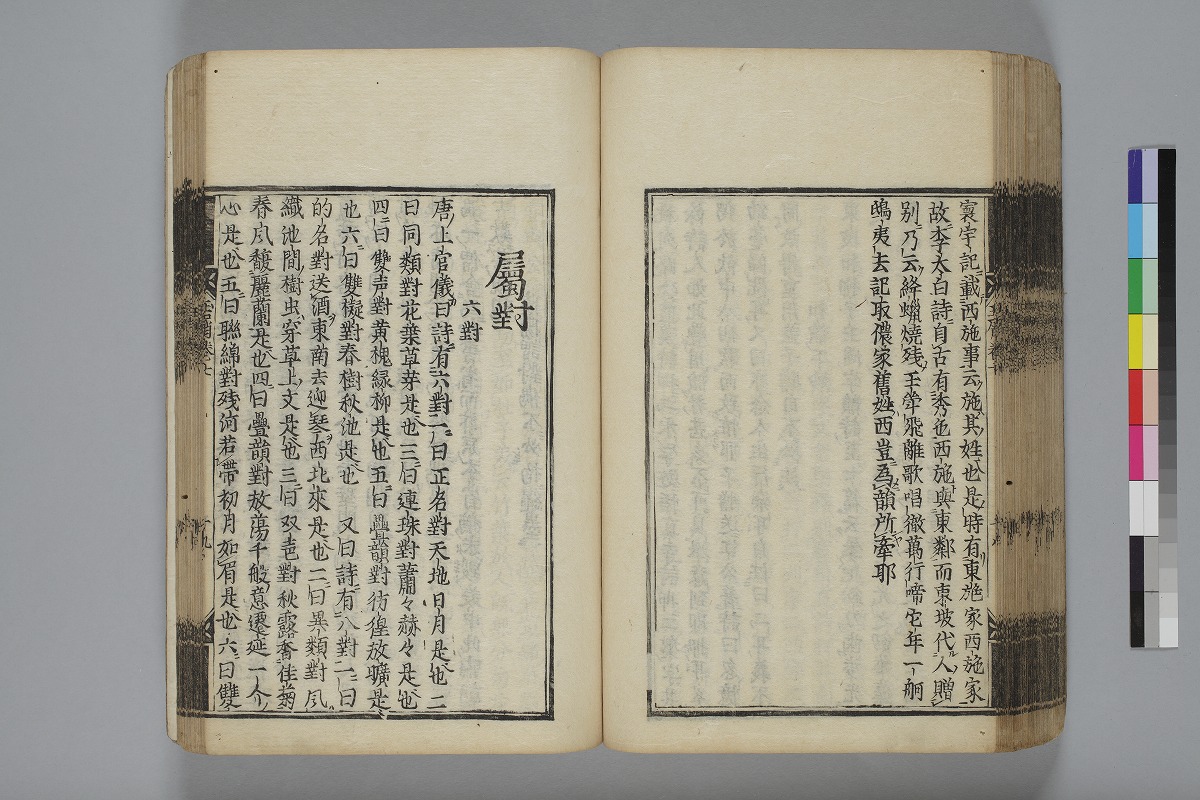 寰宇記載西施事云施其姓也是時有東施家西施家
故李太白詩自古有秀色西施與東鄰而東坡代人贈
別乃云絳蠟燒残玉斚飛離歌唱徹萬行啼它年一舸
鴟夷去記取儂家舊姓西豈為韻所牽耶
屬對
六對
唐上官儀曰詩有六對一曰正名對天地日月是也二
曰同類對花葉草芽是也三曰連珠對蕭々赫々是也
四曰雙声對黄槐緑柳是也五曰疊韻對彷徨放曠是
也六曰雙擬對春樹秋池是也 又曰詩有八對一曰
的名對送酒東南去迎琴西北來是也二曰異類對風
織池間樹虫穿草上文是也三曰双声對秋露香佳菊
春風馥麗蘭是也四曰疊韻對放蕩千般意遷延一介
心是也五曰聯綿對残河若帶初月如眉是也六曰雙